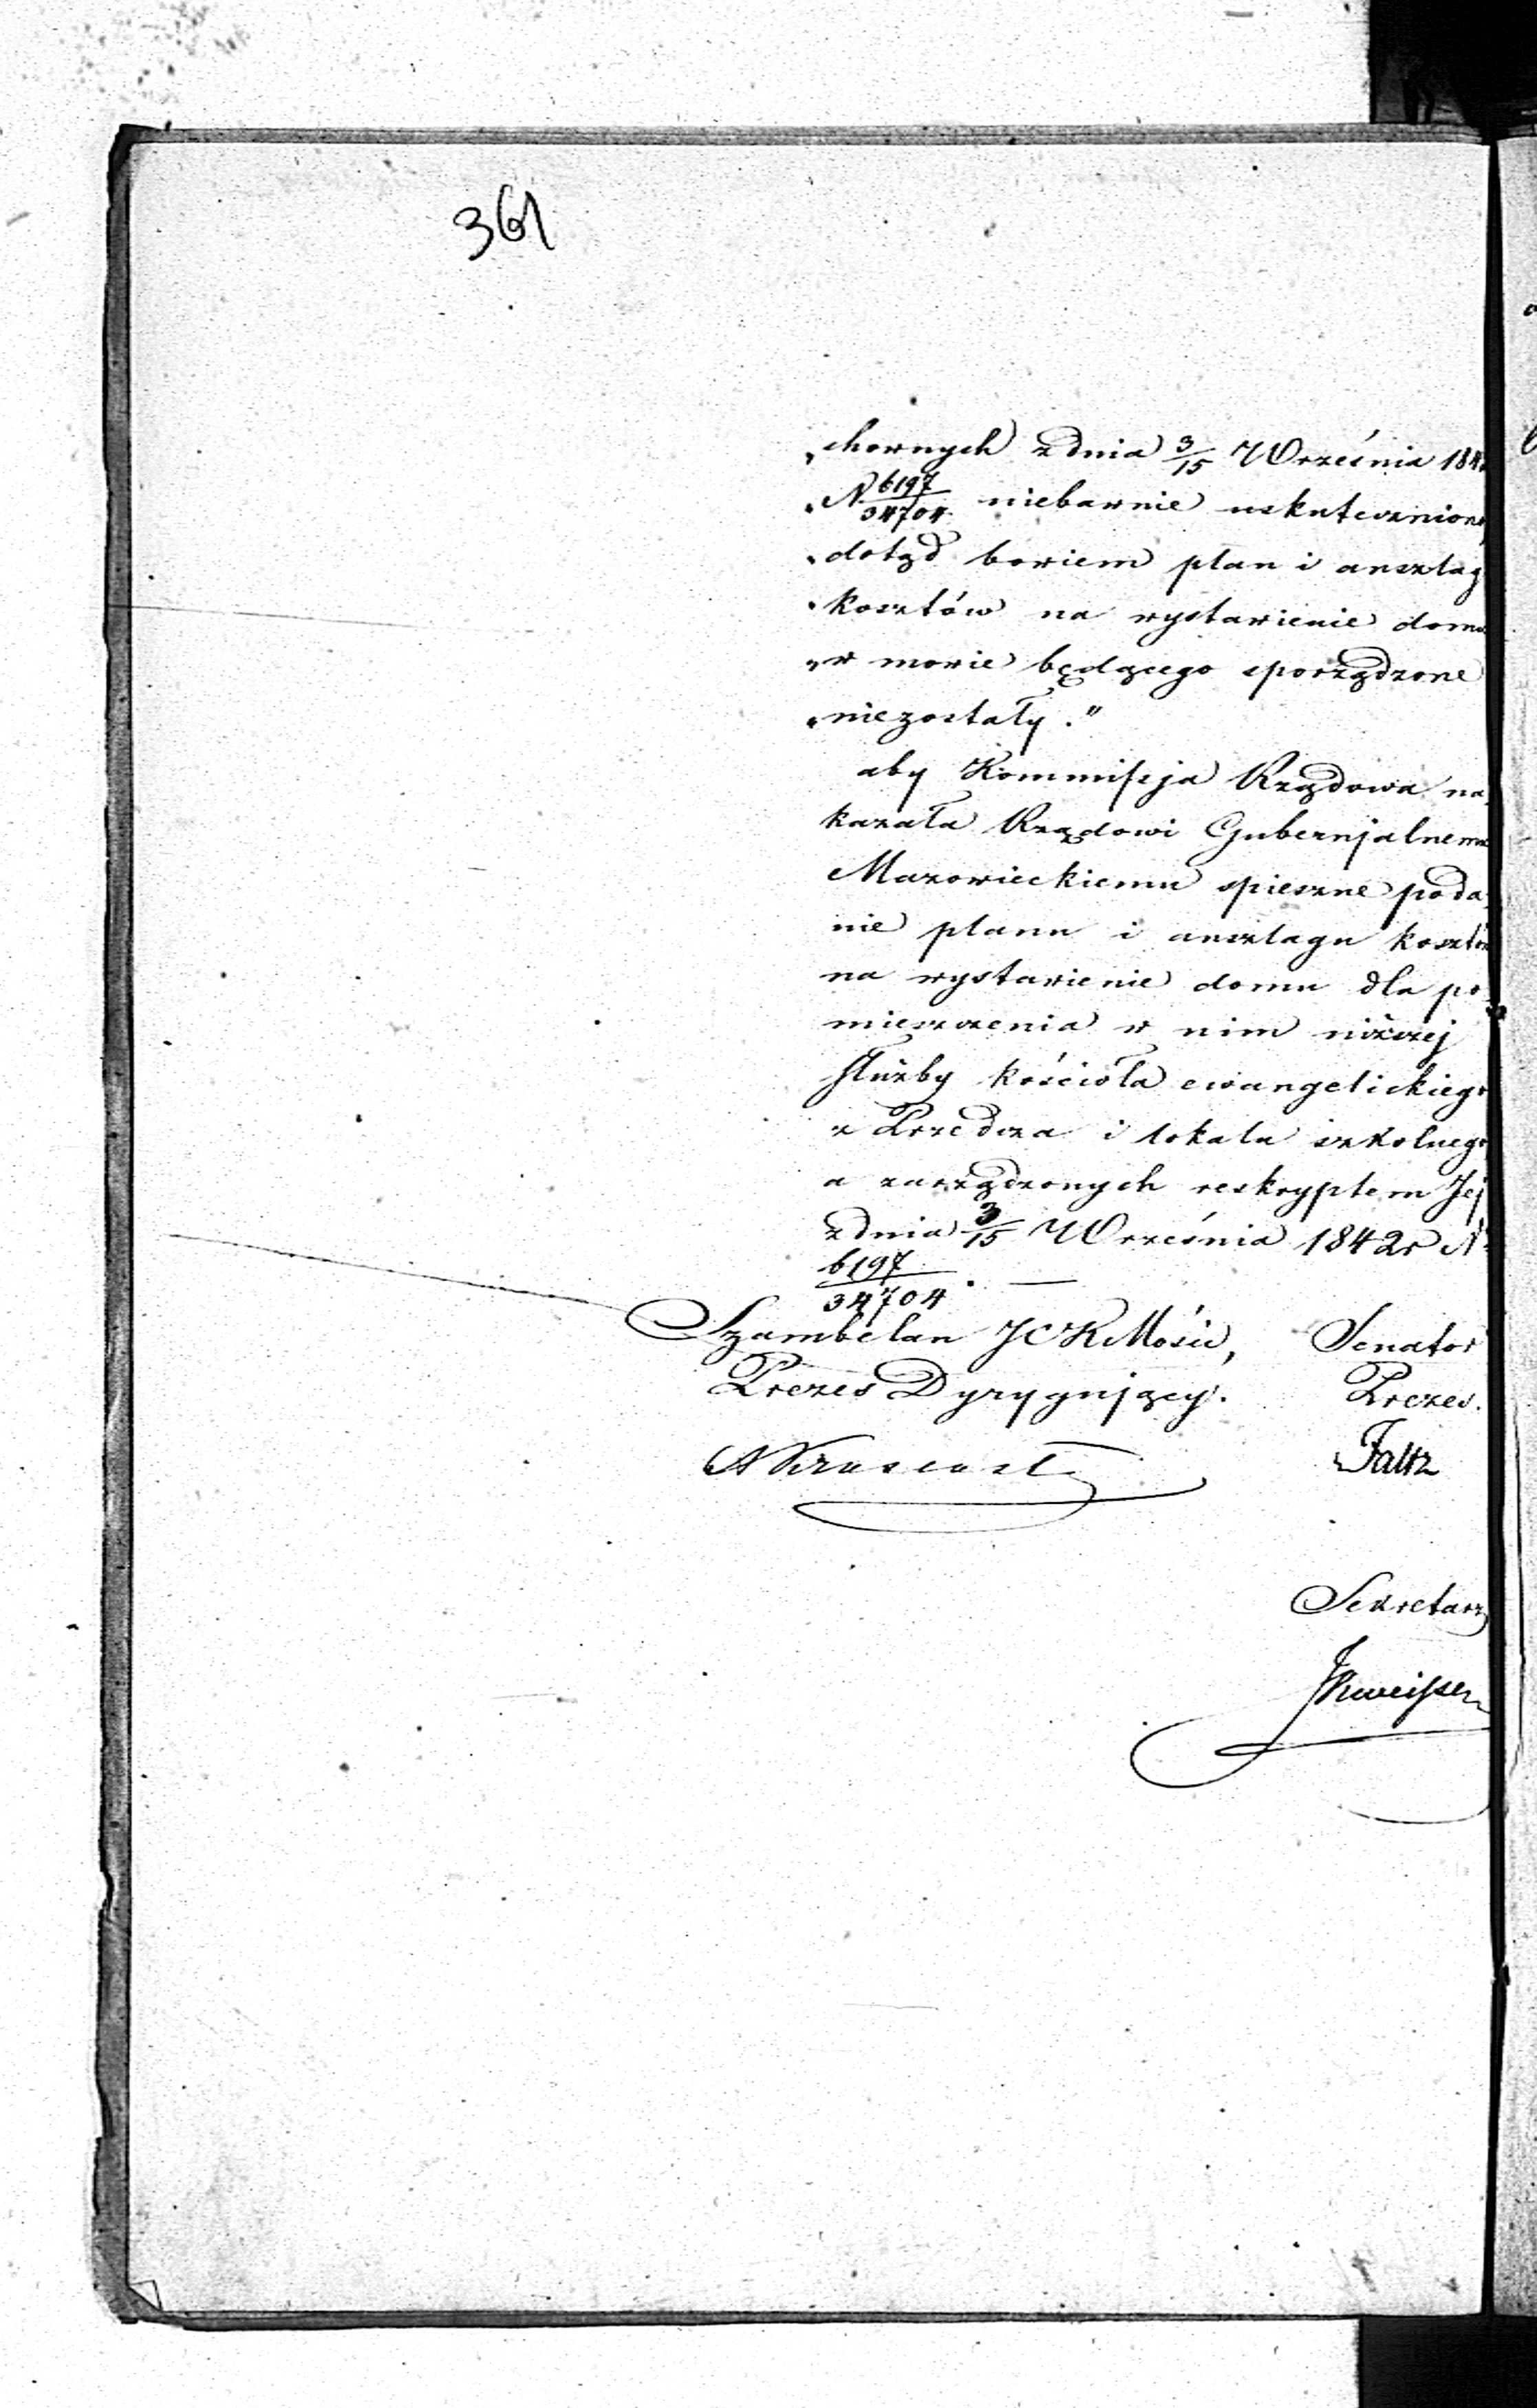 361
„chownych z dnia 3/15 Września 184
„N 6197/34704 niebawnie uskutecznione
„dotąd bowiem plan i anszlag
„kosztów na wystawienie domu
„w mowie będącego sporządzone
„niezostały."
aby Kommissja Rządowa na
kazała Rządowi Gubernjalnemu
Mazowieckiemu spieszne poda
nie planu i anszlagu kosztów
na wystawienie domu dla po
mieszczenia w nim niższej
służby kościoła ewangelickiego
z Przedcza i lokalu szkolnego
a zarządzonych reskryptem Jej
z dnia 3/15 Września 1842 r N
6197/34704. —
Szambelan JCKMości, Senator
Prezes Dyrygujący. Prezes.
Faltz
Sekretarz